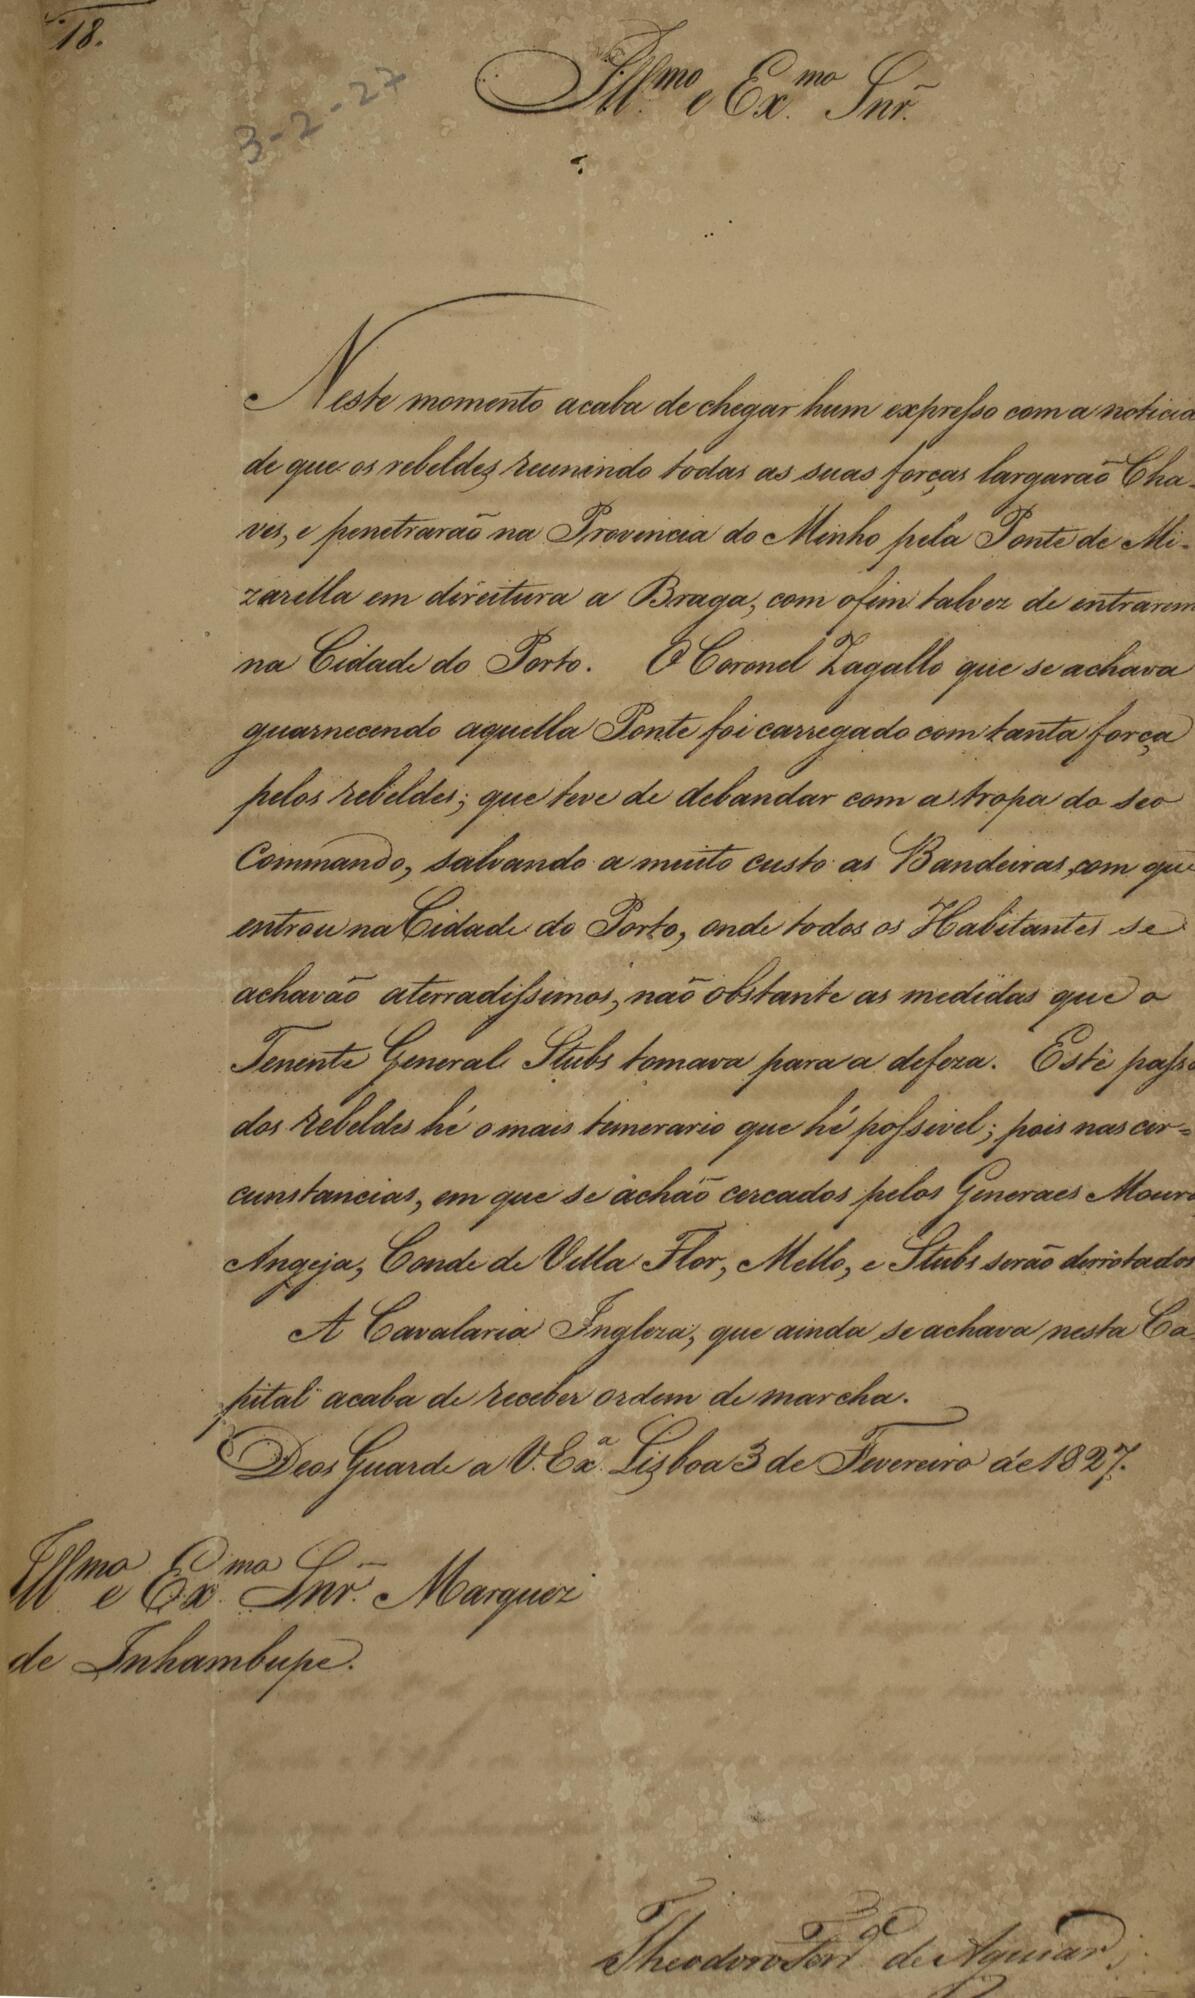 18.
3-2-27
Illmo e Ex.mo Snr̃.
Neste momento acaba de chegar hum expresso com a noticia
de que os rebeldes reunindo todas as suas forças largarão Cha-
ves, e penetrarão na Provincia do Minho pela Ponte de Mi-
zarella em direitura a Braga, com o fim talvez de entrarem
na Cidade do Porto. O Coronel Zagallo que se achava
guarnecendo aquella Ponte foi carregado com tanta força
pelos rebeldes; que teve de debandar com a tropa do seo
Commando, salvando a muito custo as Bandeiras, com que
entrou na Cidade do Porto, onde todos os Habitantes se
achavão aterradissimos, não obstante as medidas que o
Tenente General Stubs tomava para a defeza. Este passo
dos rebeldes hé o mais temerario que hé possivel; pois nas cir=
cunstancias, em que se achão cercados pelos Generaes Moura
Angeja, Conde de Villa Flor, Mello, e Stubs serão derrotados
A Cavalaria Ingleza, que ainda se achava nesta Ca-
pital acaba de receber ordem de marcha.
Deos Guarde a V. Ex.ª Lisboa 3 de Fevereiro de 1827.
Illmo e Ex.mo Snr̃. Marquez
de Inhambupe.
Theodoro Ferr.ª de Aguiar